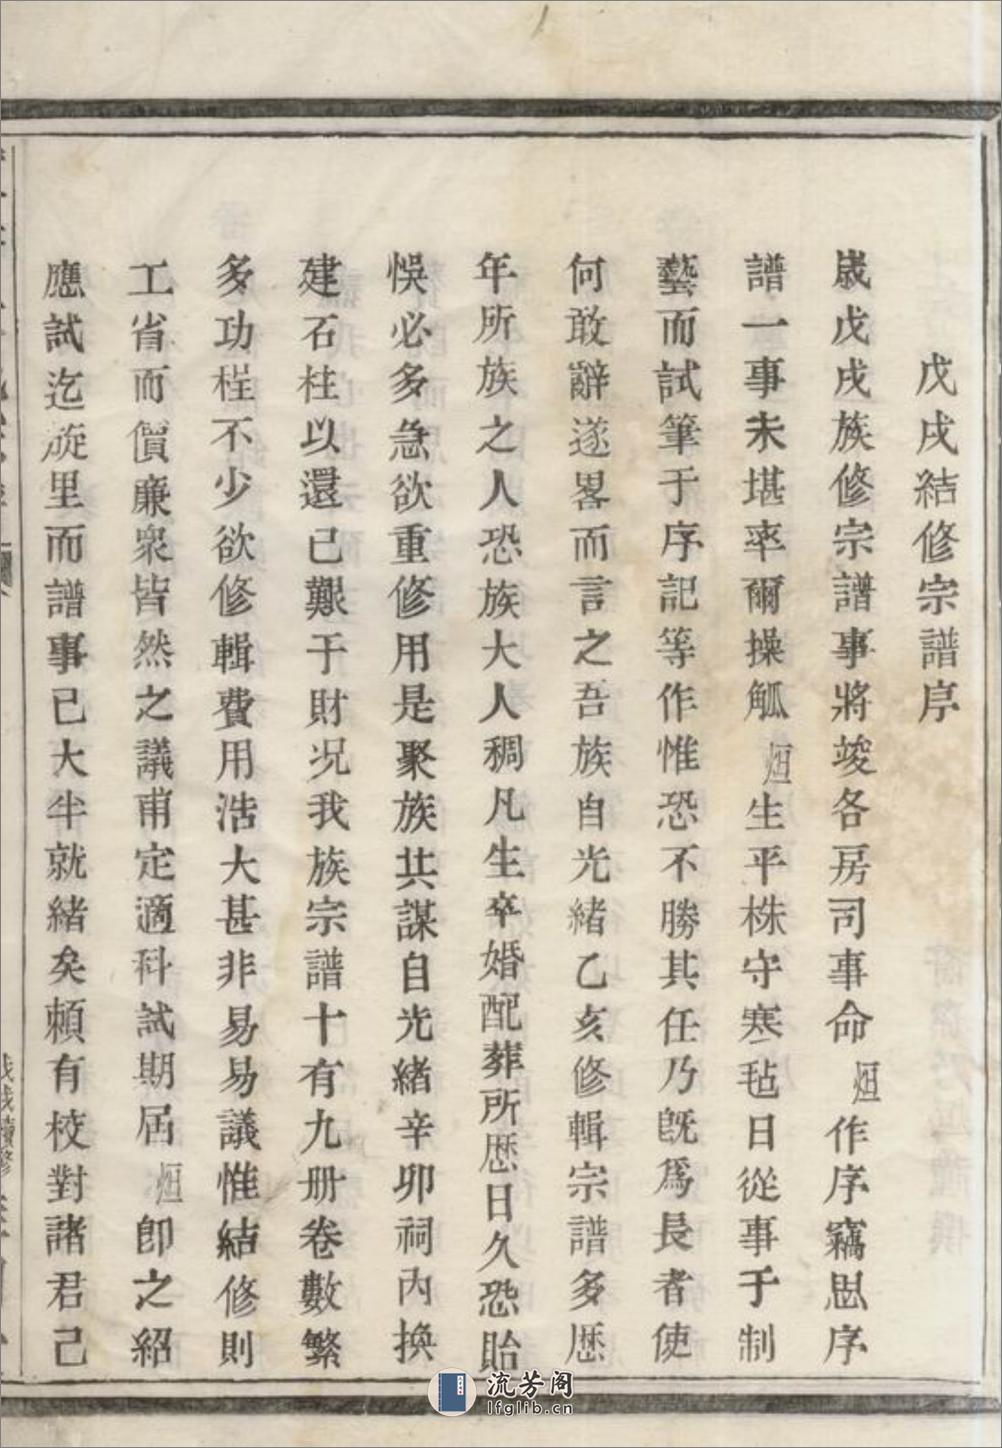 戊戌結修宗譜序
歲戊戌族修宗譜事將竣各房司事命烜作序竊思序
譜一事未堪率爾操觚烜生平株守寒毡日從事于制
藝而試筆于序記等作惟恐不勝其任乃旣爲長者使
何敢辭遂畧而言之吾族自光緒乙亥修輯宗譜多歷
年所族之人恐族大人稠凡生卒婚配葬所歷日久恐貽
悞必多急欲重修用是聚族共謀自光緒辛卯祠內換
建石柱以還已艱于財況我族宗譜十有九册卷數繁
多功程不少欲修輯費用浩大甚非易易議惟結修則
工省而價廉衆皆然之議甫定適科試期屆烜卽之紹
應試迄旋里而譜事已大半就緒矣頼有校對諸君己
流芳阁
lfglib.cn